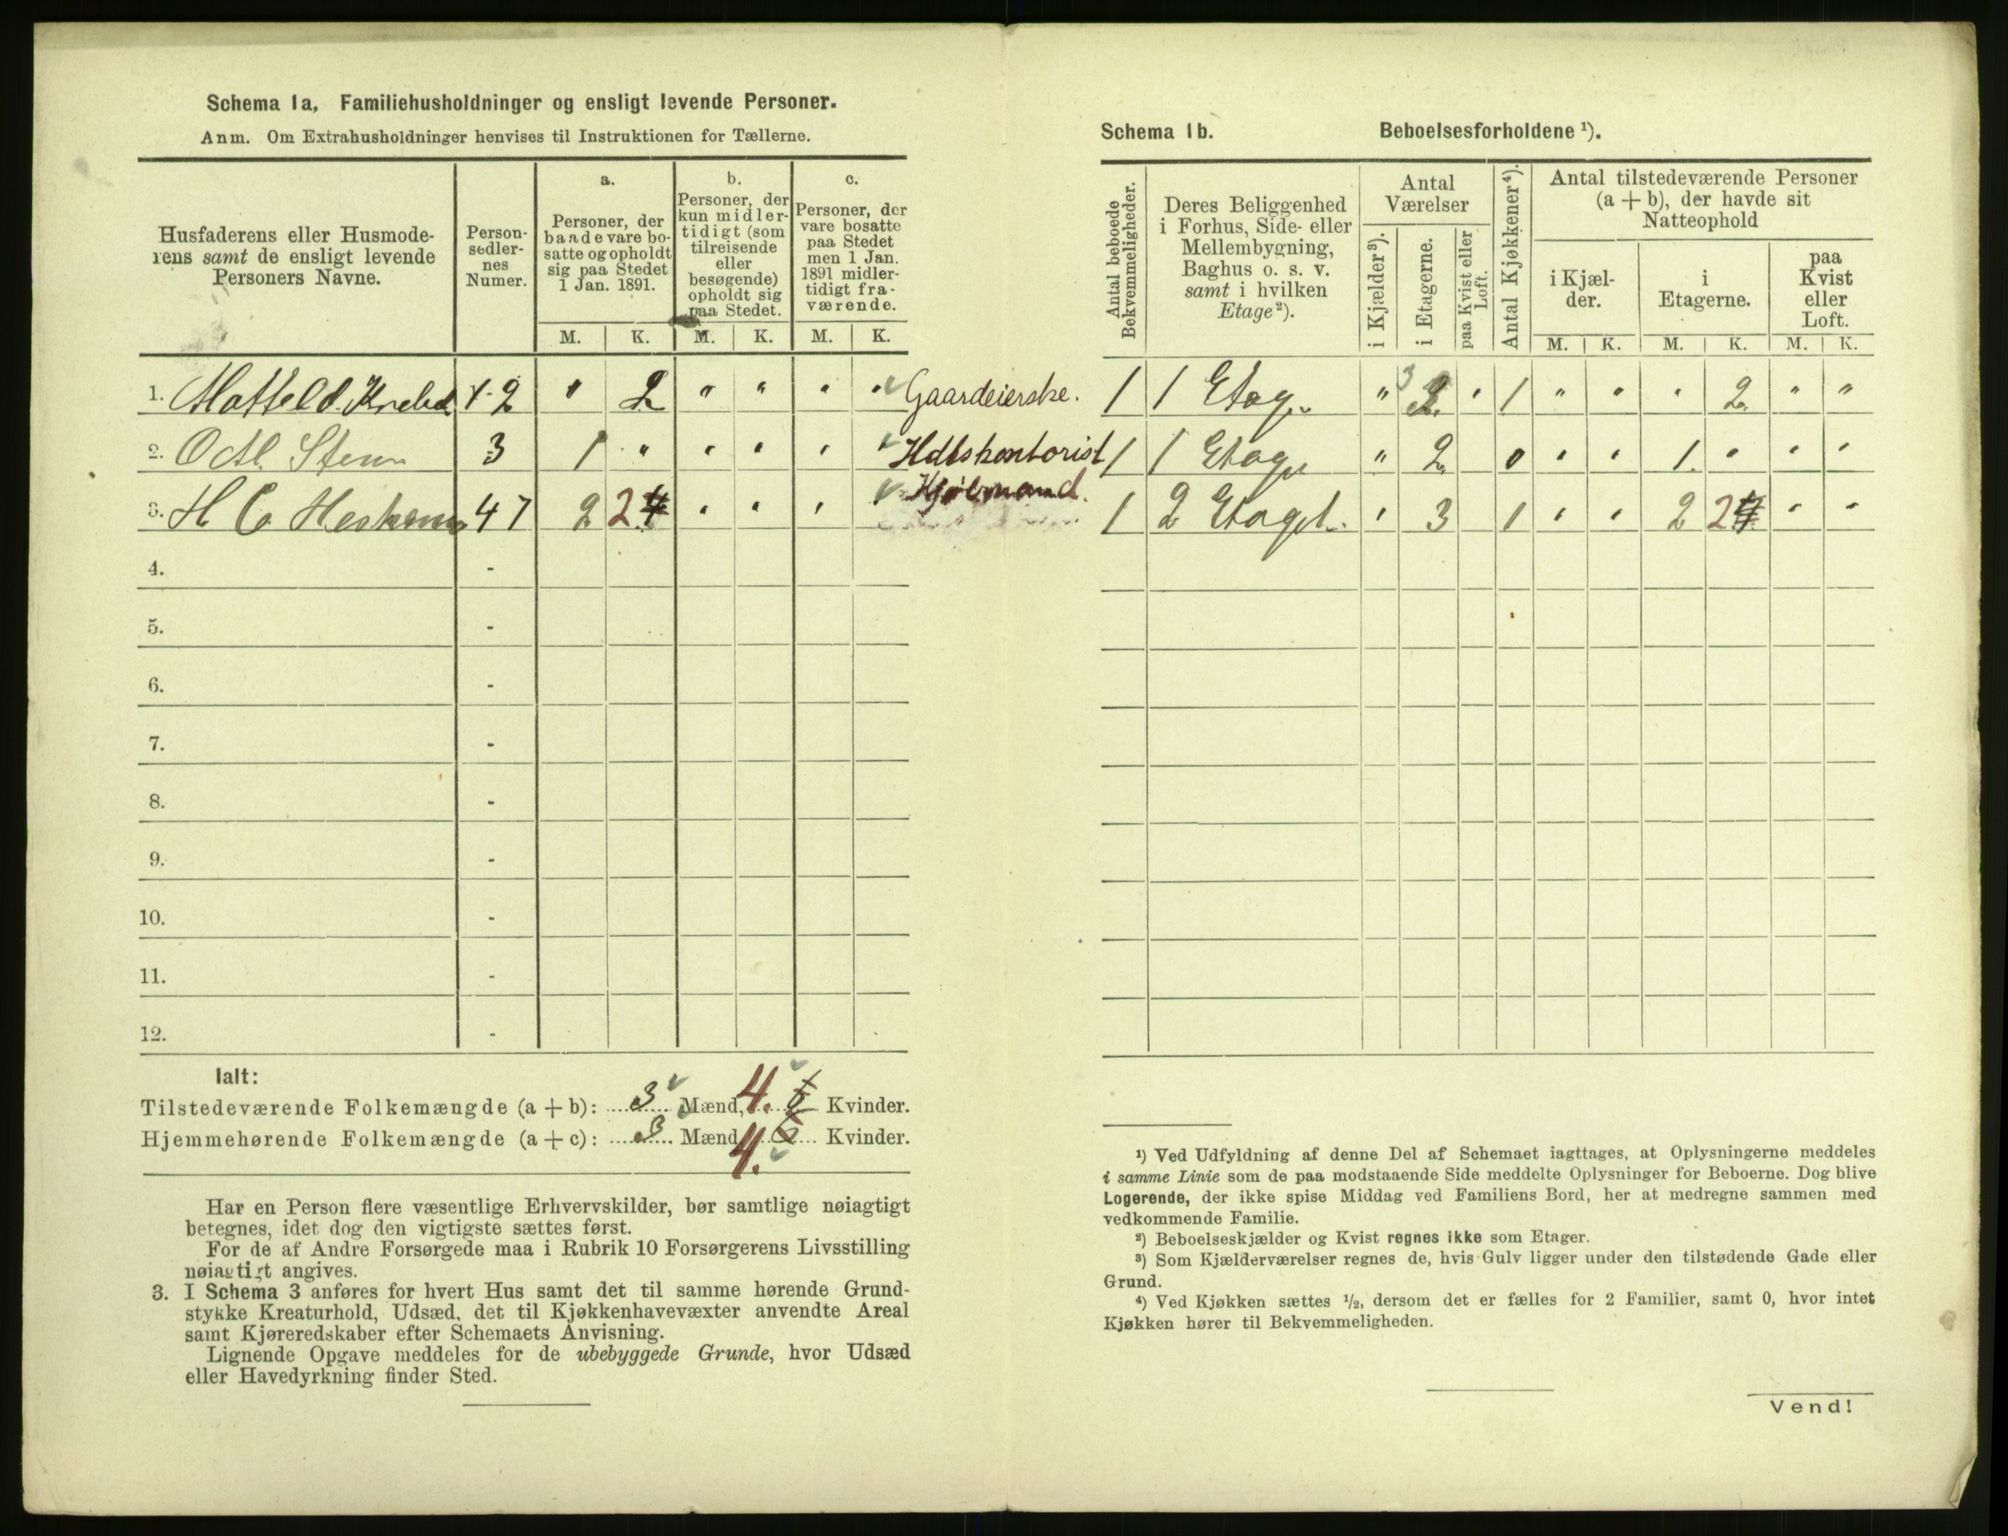 Schema 1a, Familiehusholdninger og ensligt levende Personer.
Anm. Om Extrahusholdninger henvises til Instruktionen for Tællerne.
Husfaderens eller Husmode-
rens samt de ensligt levende
Personers Navne.
Person-
sedler-
nes
Numer.
a.
Personer, der
baade vare bo-
satte og opholdt
sig paa Stedet
1 Jan. 1891.
b.
Personer, der
kun midler-
tidigt (som
tilreisende
eller
besøgende)
opholdt sig
paa Stedet.
c.
Personer, der
vare bosatte
paa Stedet
men 1 Jan.
1891 midler-
tidigt fra-
værende.
M. K. M. K. M. K.
1. 1-2 " 2 " " " " Gaardeierske.
2. 3 1 " " " " " Hdlskontorist
3. H C 4 7 2 2 4 " " " Kjøbmand.
4. -
5. -
6. -
7. -
8. -
9. -
10. -
11. -
12. -
Ialt:
Tilstedeværende Folkemængde (a + b): 3 Mænd, 4. 6 Kvinder.
Hjemmehørende Folkemængde (a + c): 3 Mænd 4. 6 Kvinder.
Har en Person flere væsentlige Erhvervskilder, bør samtlige nøiagtigt
betegnes, idet dog den vigtigste sættes først.
For de af Andre Forsørgede maa i Rubrik 10 Forsørgerens Livsstilling
nøiagtigt angives.
3. I Schema 3 anføres for hvert Hus samt det til samme hørende Grund-
stykke Kreaturhold, Udsæd, det til Kjøkkenhavevæxter anvendte Areal
samt Kjøreredskaber efter Schemaets Anvisning.
Lignende Opgave meddeles for de ubebyggede Grunde, hvor Udsæd
eller Havedyrkning finder Sted.
Schema 1b. Beboelsesforholdene ¹).
Antal beboede
Bekvemmeligheder.
Deres Beliggenhed
i Forhus, Side- eller
Mellembygning,
Baghus o. s. v.
samt i hvilken
Etage ²).
Antal
Værelser
i Kjælder ³).
i Etagerne.
paa Kvist eller
Loft.
Antal Kjøkkener ⁴).
Antal tilstedeværende Personer
(a + b), der havde sit
Natteophold
i Kjæl-
der.
i
Etagerne.
paa
Kvist
eller
Loft.
M. K. M. K. M. K.
1 1 Etage " 3 2 " 1 " " " 2 " "
1 1 Etage " 2 0 " " 1 " " "
1 2 Etage " 3 1 " " 2 2 4 " "
¹) Ved Udfyldning af denne Del af Schemaet iagttages, at Oplysningerne meddeles
i samme Linie som de paa modstaaende Side meddelte Oplysninger for Beboerne. Dog blive
Logerende, der ikke spise Middag ved Familiens Bord, her at medregne sammen med
vedkommende Familie.
²) Beboelseskjælder og Kvist regnes ikke som Etager.
³) Som Kjælderværelser regnes de, hvis Gulv ligger under den tilstødende Gade eller
Grund.
⁴) Ved Kjøkken sættes ½, dersom det er fælles for 2 Familier, samt 0, hvor intet
Kjøkken hører til Bekvemmeligheden.
Vend!